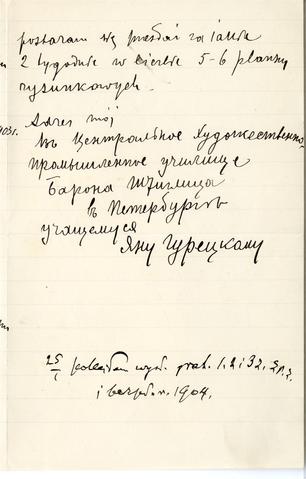 postaram się przesłać za jakie
2 tygodnie w liczbie 5-6 plansz
rysunkowych.
Adres mój
въ Центральное Художественно-
промышленное училище
Барона Штиглица
в Петербургѣ
учащемуся
Яну Гурецкому
25/I wysł. 1. 2 i 32.
i 1904.